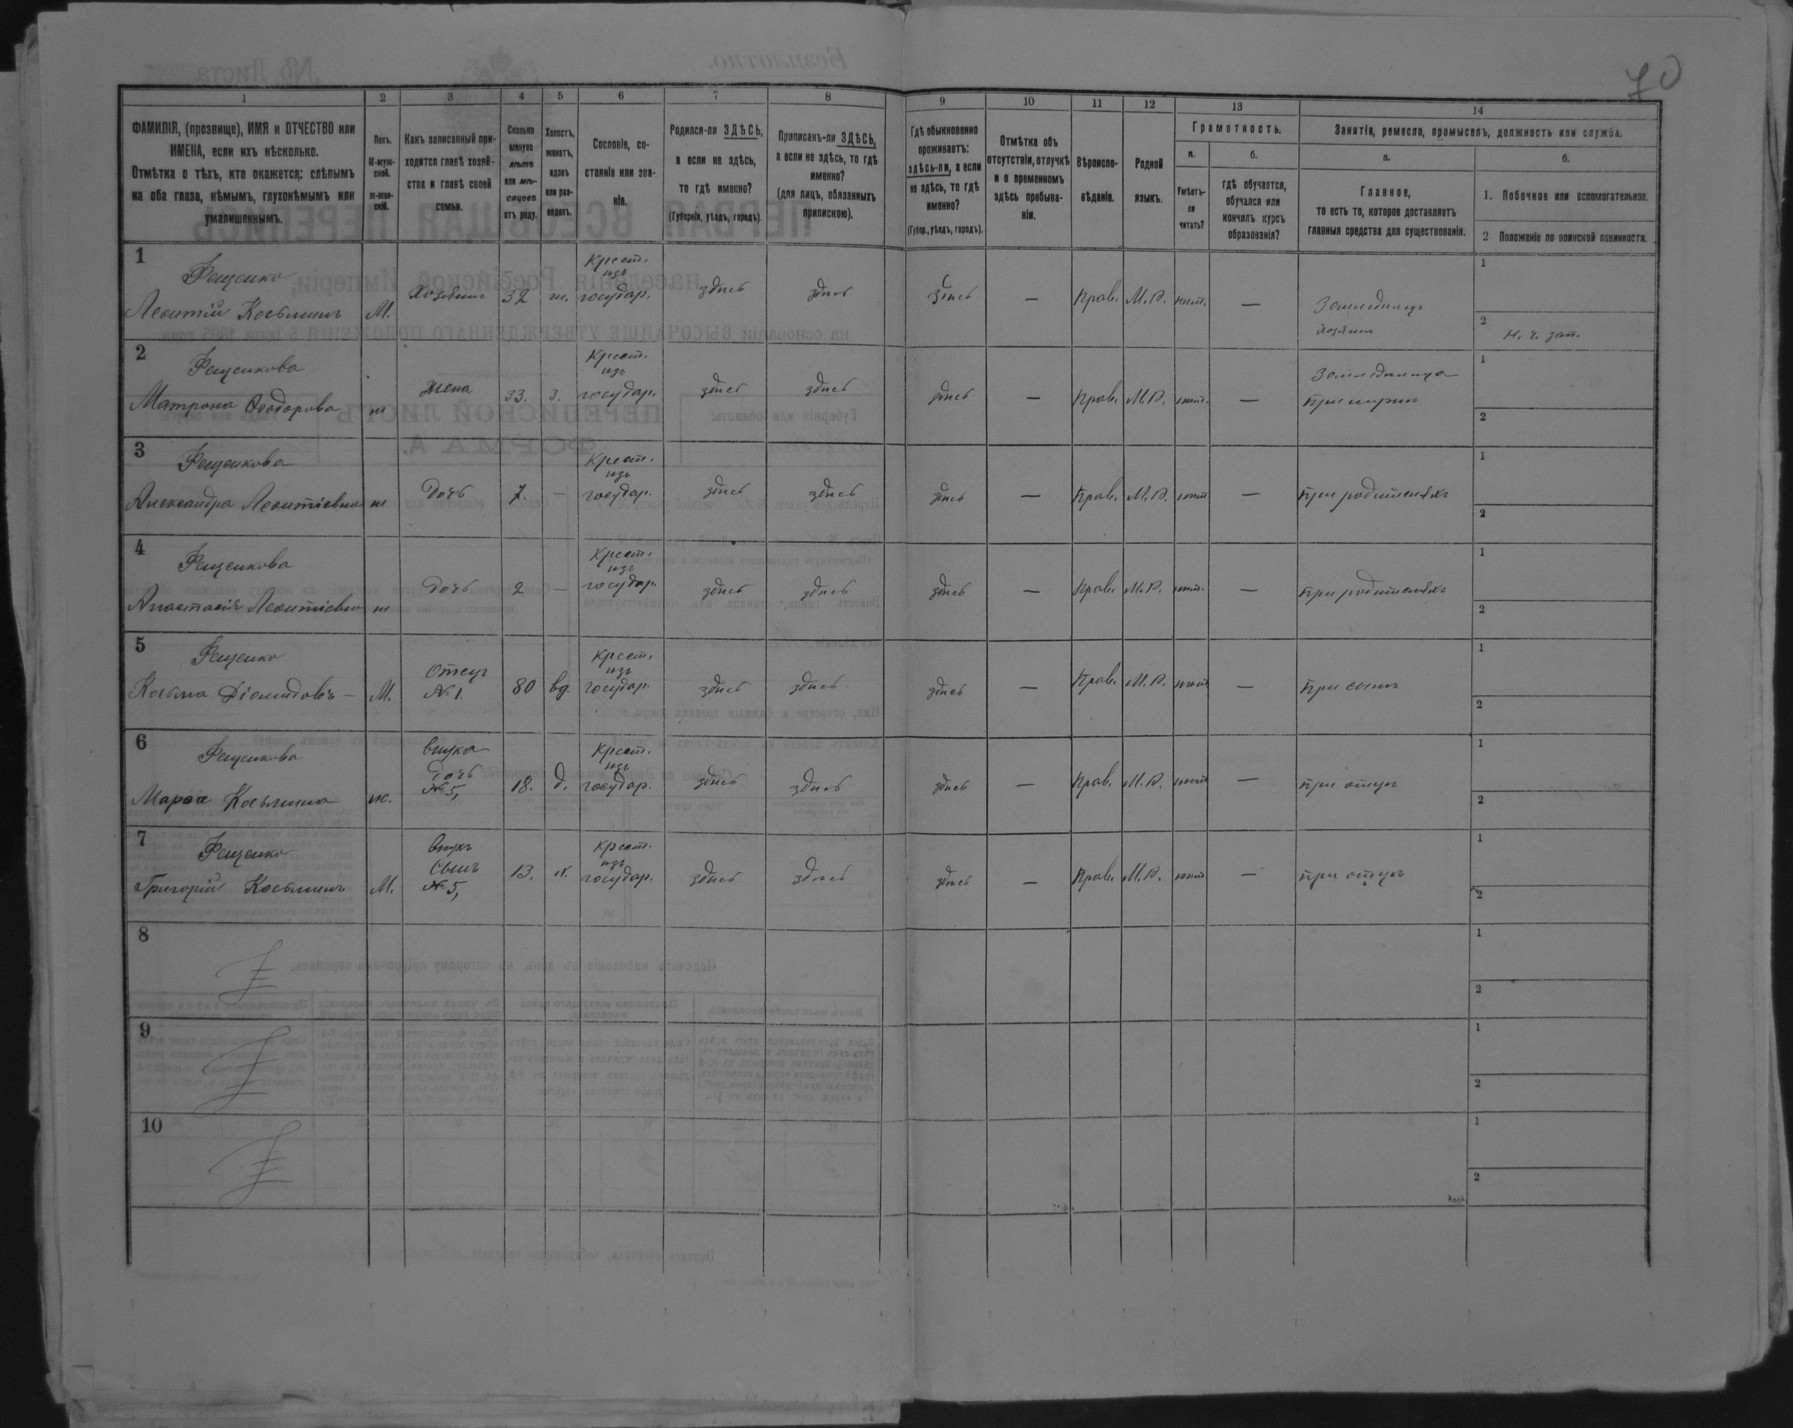 70
1 2 3 4 5 6 7 8 9 10 11 12 13 14
ФАМИЛІЯ, (прозвище), ИМЯ и ОТЧЕСТВО или
ИМЕНА, если ихъ нѣсколько.
Отмѣтка о тѣхъ, кто окажется: слѣпымъ
на оба глаза, нѣмымъ, глухонѣмымъ или
умалишеннымъ.
Полъ.
М-муж-
ской.
ж-жен-
скій.
Какъ записанный при-
ходится главѣ хозяй-
ства и главѣ своей
семьи.
Сколько
минуло
лѣтъ
или мѣ-
сяцевъ
отъ роду.
Холостъ,
женатъ,
вдовъ
или раз-
веденъ.
Сословіе, со-
стояніе или зва-
ніе.
Родился-ли ЗДѢСЬ,
а если не здѣсь,
то гдѣ именно?
(Губернія, уѣздъ, городъ).
Приписанъ-ли ЗДѢСЬ,
а если не здѣсь, то гдѣ
именно?
(для лицъ, обязанныхъ
припискою).
Гдѣ обыкновенно
проживаетъ:
здѣсь-ли, а если
не здѣсь, то гдѣ
именно?
(Губер., уѣздъ, городъ).
Отмѣтка объ
отсутствіи, отлучкѣ
и о временномъ
здѣсь пребыва-
ніи.
Вѣроиспо-
вѣданіе.
Родной
языкъ.
Грамотность.
а.
Умѣетъ-
ли
читать?
б.
гдѣ обучается,
обучался или
кончилъ курсъ
образованія?
Занятіе, ремесло, промыселъ, должность или служба.
а.
Главное,
то есть то, которое доставляетъ
главныя средства для существованія.
б.
1. Побочное или вспомогательное.
2 Положеніе по воинской повинности.
1
Фещенко
Леонтій Косьминъ М. Хозяинъ 32 ж. Крест. изъ государ. здѣсь здѣсь здѣсь — Прав. М.Р. — 1
хозяинъ 2 н. ч. зап.
2
Фещенкова
Матрона Ѳеодорова ж жена 33. з. Крест. изъ государ. здѣсь здѣсь здѣсь — Прав. М.Р. — При мужѣ 1
2
3
Фещенкова
Александра Леонтіевна ж Дочь 7. — Крест. изъ государ. здѣсь здѣсь здѣсь — Прав. М.Р. — при родителяхъ 1
2
4
Фещенкова
Анастасія Леонтіевна ж Дочь 2 — Крест. изъ государ. здѣсь здѣсь здѣсь — Прав. М.Р. — при родителяхъ 1
2
5
Фещенко
Косьма Діомидовъ — М. Отецъ № 1 80 вд. Крест. изъ государ. здѣсь здѣсь здѣсь — Прав. М.Р. — При сынѣ 1
2
6
Фещенкова
Марѳа Косьмина ж. внука Дочь № 5, 18. д. Крест. изъ государ. здѣсь здѣсь здѣсь — Прав. М.Р. — при отцѣ 1
2
7
Фещенко
Григорій Косьминъ М. внукъ Сынъ № 5, 13. х. Крест. изъ государ. здѣсь здѣсь здѣсь — Прав. М.Р. — при отцѣ 1
2
8 1
2
9 1
2
10 1
2